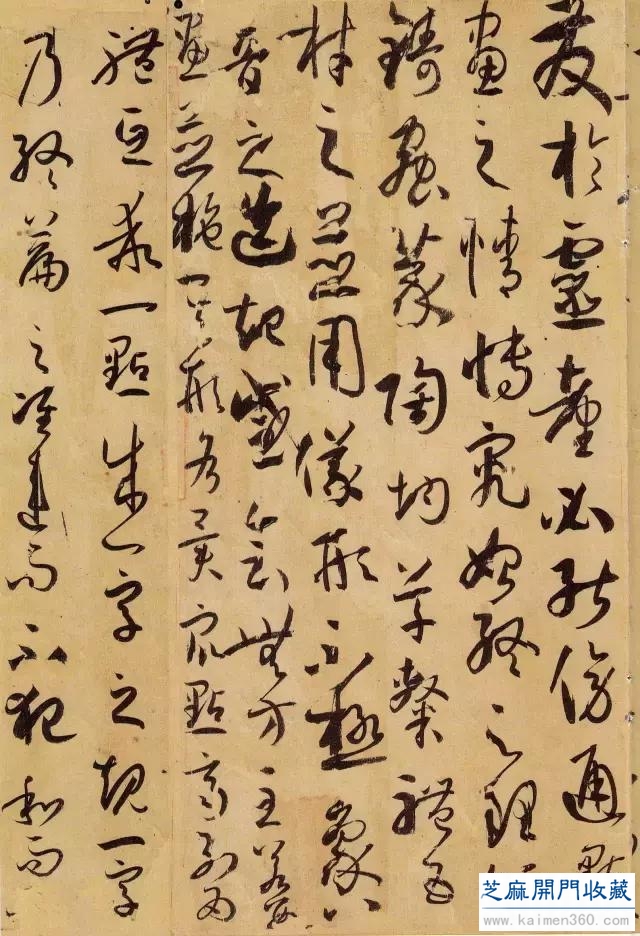 發於靈臺必能傍通點
畫之情博究始終之理
鑄蟲篆陶均草隸體五
材之並用儀形不極象八
音之迭起感會無方至若數
畫並施其形各異眾點齊列為
體互乖一點成一字之規一字
乃終篇之准違而不犯和而
芝麻開門收藏
www.kaimen360.com